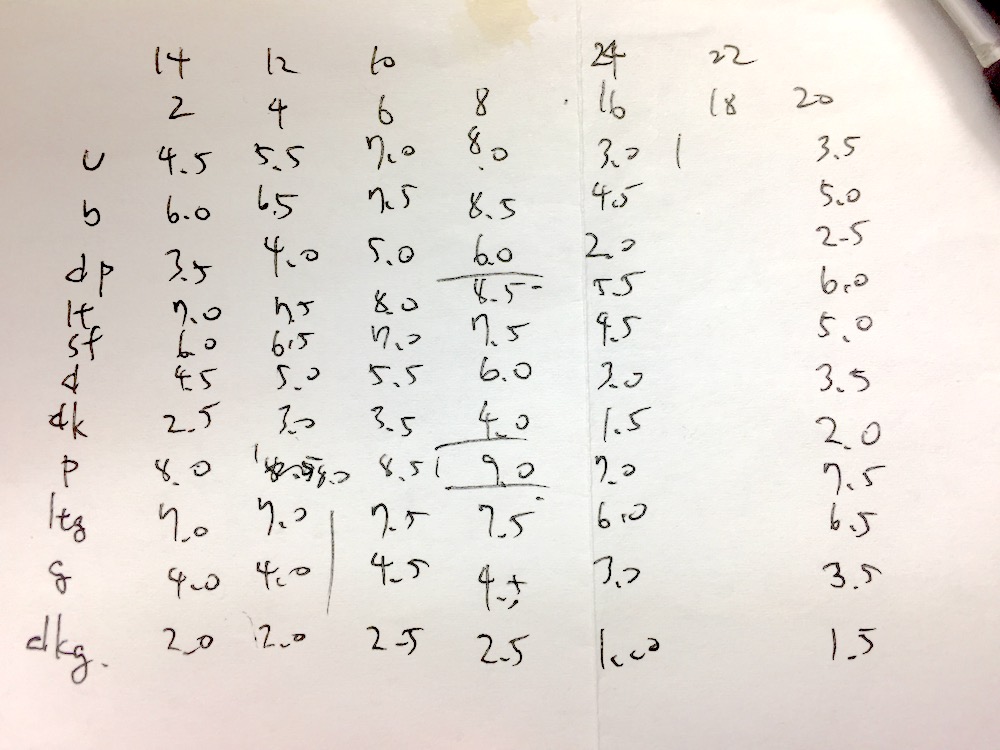 14 12 10 24 22
2 4 6 8 16 18 20
v 4.5 5.5 7.0 8.0 3.0 3.5
b 6.0 6.5 7.5 8.5 4.5 5.0
dp 3.5 4.0 5.0 6.0 2.0 2.5
lt 7.0 7.5 8.0 8.5 5.5 6.0
sf 6.0 6.5 7.0 7.5 4.5 5.0
d 4.5 5.0 5.5 6.0 3.0 3.5
dk 2.5 3.0 3.5 4.0 1.5 2.0
p 8.0 8.0 8.5 9.0 7.0 7.5
ltg 7.0 7.0 7.5 7.5 6.0 6.5
g 4.0 4.0 4.5 4.5 3.0 3.5
dkg. 2.0 2.0 2.5 2.5 1.0 1.5